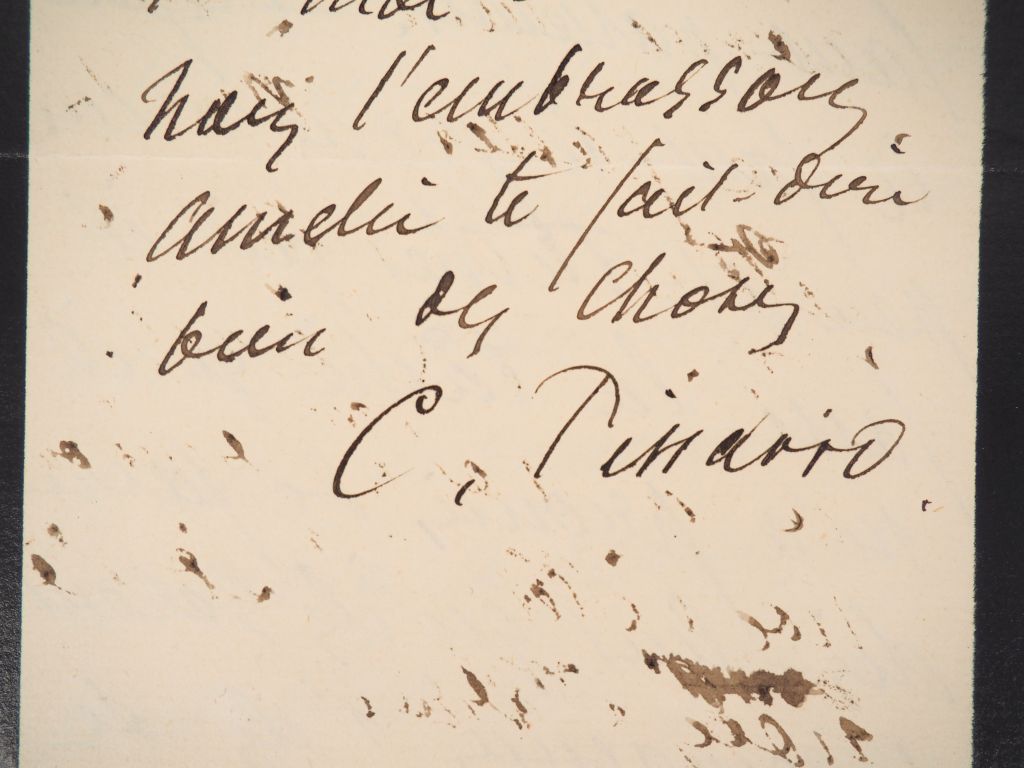 moi
Nous t'embrassons,
Amelie te fait dire
bien des choses
C. Pissarro.